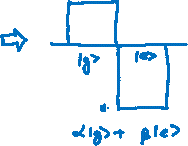 |g⟩ |e⟩
α|g⟩ + β|e⟩